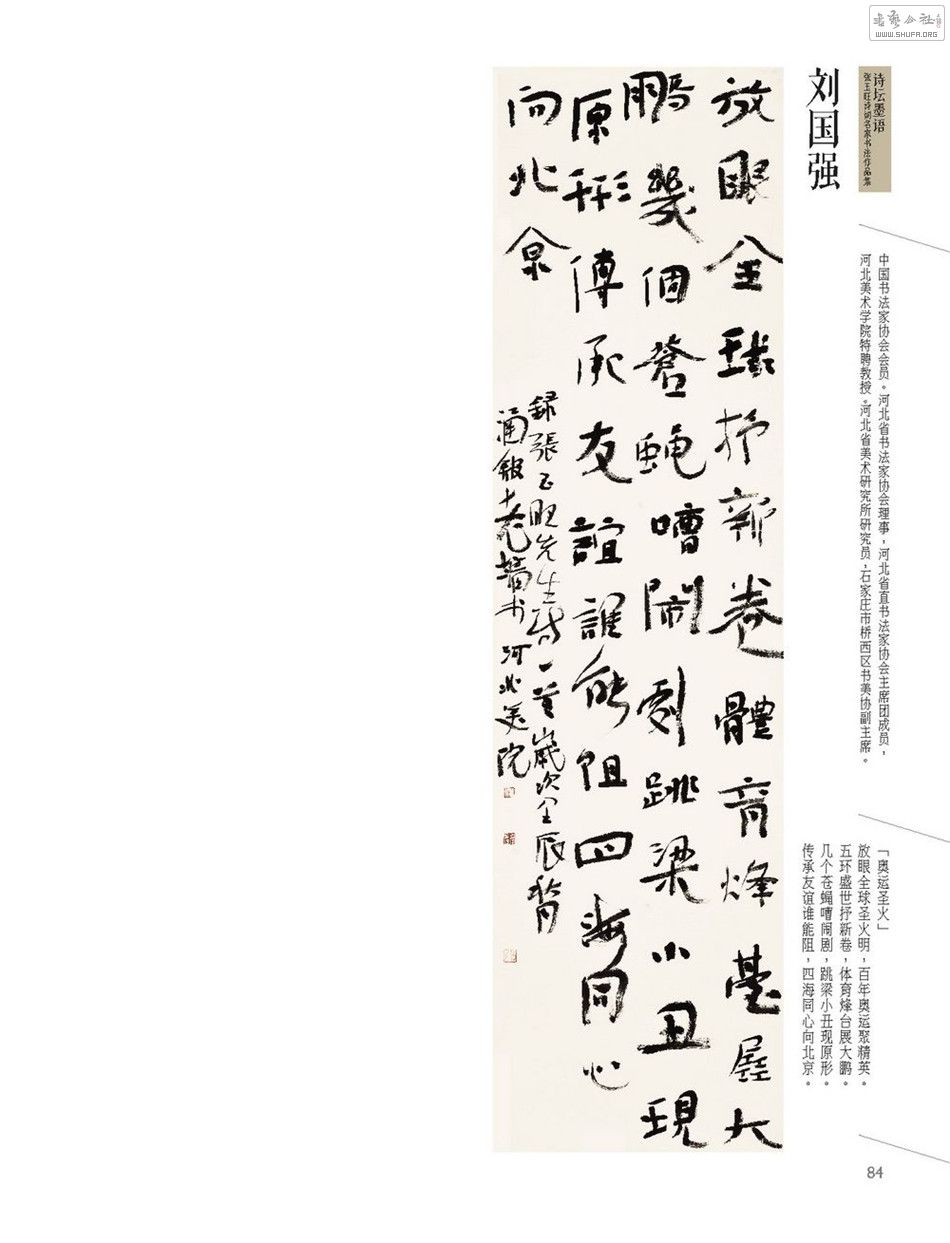 书艺公社
WWW.SHUFA.ORG
诗坛墨语
张玉旺诗词名家书法作品集
刘国强
中国书法家协会会员。河北省书法家协会理事，河北省直书法家协会主席团成员，
河北美术学院特聘教授。河北省美术研究所研究员，石家庄市桥西区书美协副主席。
「奥运圣火」
放眼全球圣火明，百年奥运聚精英。
五环盛世抒新卷，体育烽台展大鹏。
几个苍蝇嘈闹剧，跳梁小丑现原形。
传承友谊谁能阻，四海同心向北京。
放眼全球抒新卷體育烽臺展大
鵬幾個蒼蠅嘈鬧劇跳梁小丑現
原形傳承友誼誰能阻四海同心
向北京
録張玉旺先生詩一首歲次壬辰
老墙书河北美院
84